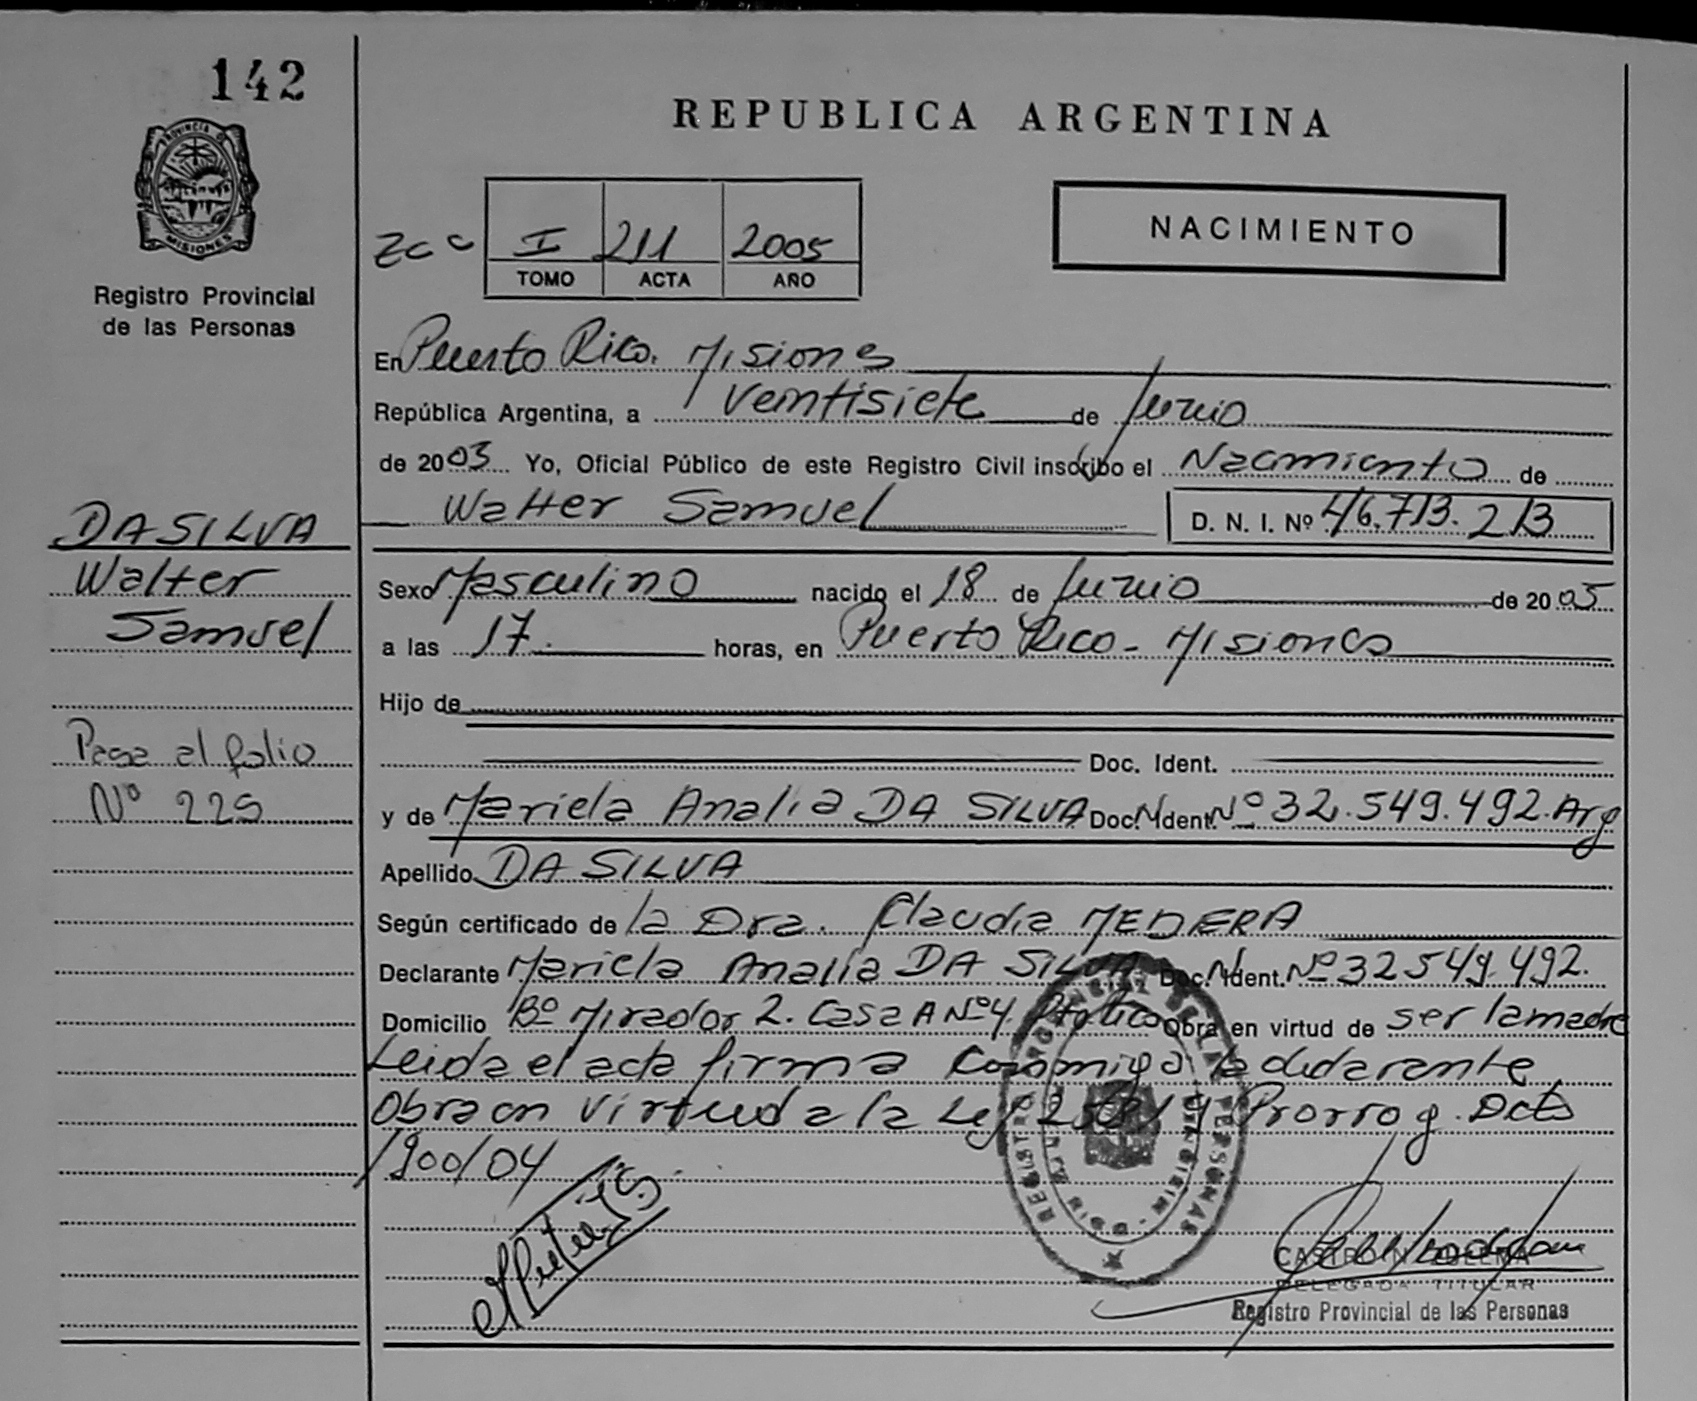 142
PROVINCIA DE
MISIONES
Registro Provincial
de las Personas
REPUBLICA ARGENTINA
NACIMIENTO
I 211 2005
TOMO ACTA AÑO
En Puerto Rico. Misiones
República Argentina, a Veintisiete de Junio
de 2003 Yo, Oficial Público de este Registro Civil inscribo el Nacimiento de
Walter Samuel D. N. I. Nº 46.713.213
DA SILVA
Walter
Samuel
Sexo Masculino nacido el 18 de Junio de 2005
a las 17. horas, en Puerto Rico - Misiones
Hijo de
Doc. Ident.
Pasa al folio
Nº 225
y de Mariela Analia DA SILVA Doc. Ident. Nº 32.549.492. Arg
Apellido DA SILVA
Según certificado de la Dra. Claudia MEDERA
Declarante Mariela Analía DA SILVA Doc. Ident. Nº 32549.492.
Domicilio Bº Mirador 2. Casa A Nº 4. Pto Rico Obra en virtud de ser la madre
Leida el acta firma Conmigo la declarante
Obra en virtud a la Ley Prorrog. Dcto
1900/04
REGISTRO PROVINCIAL DE LAS PERSONAS
DELEGADA TITULAR
Registro Provincial de las Personas